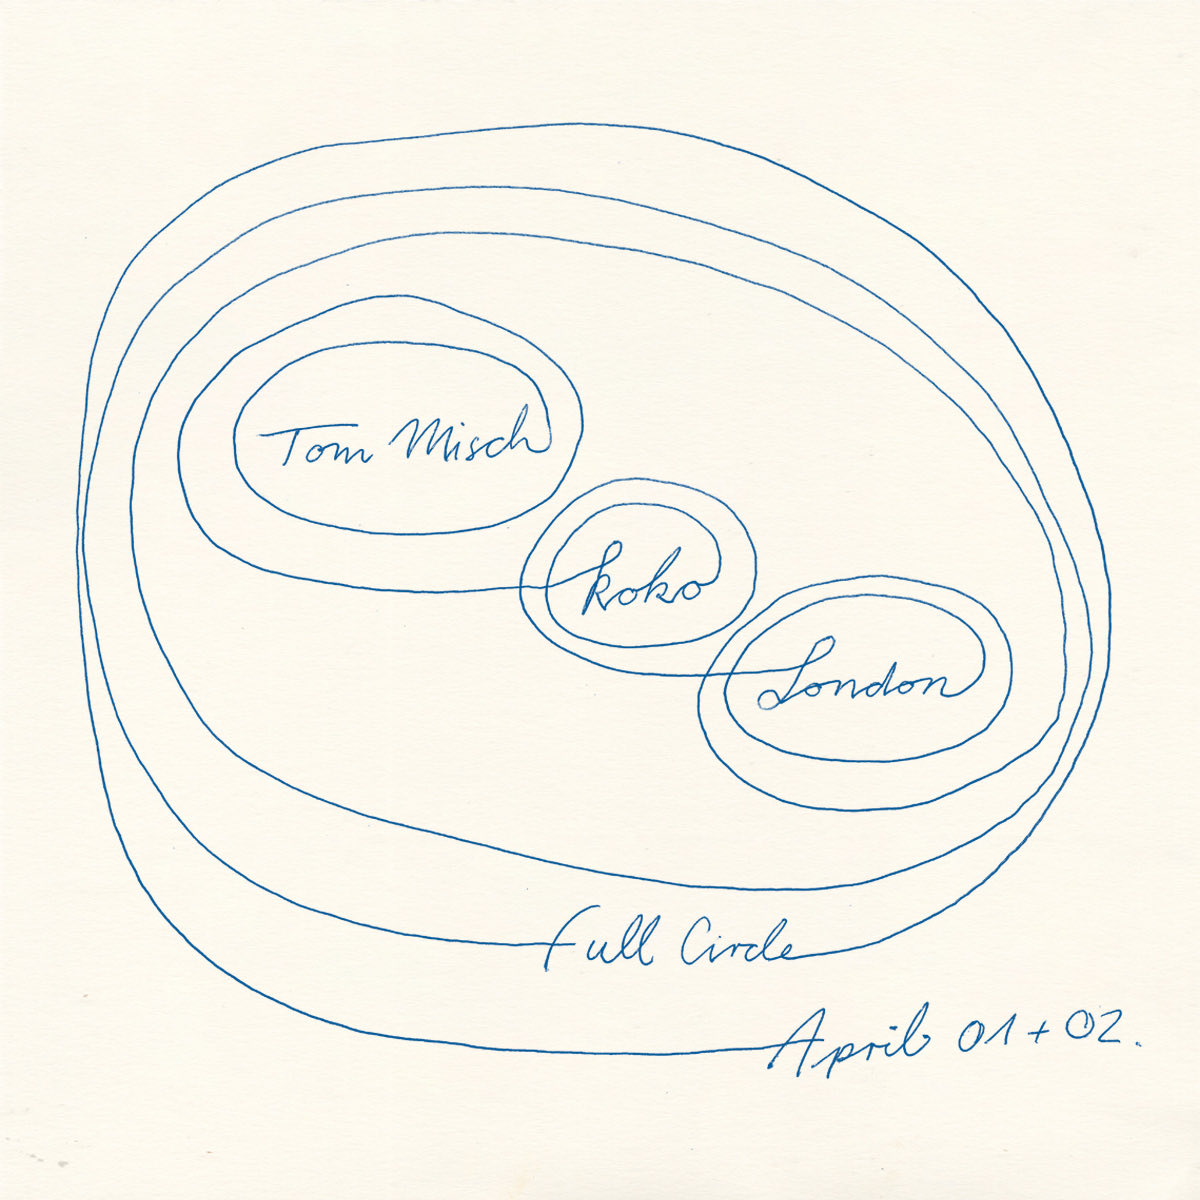 Tom Misch
Koko
London
Full Circle
April 01 + 02.